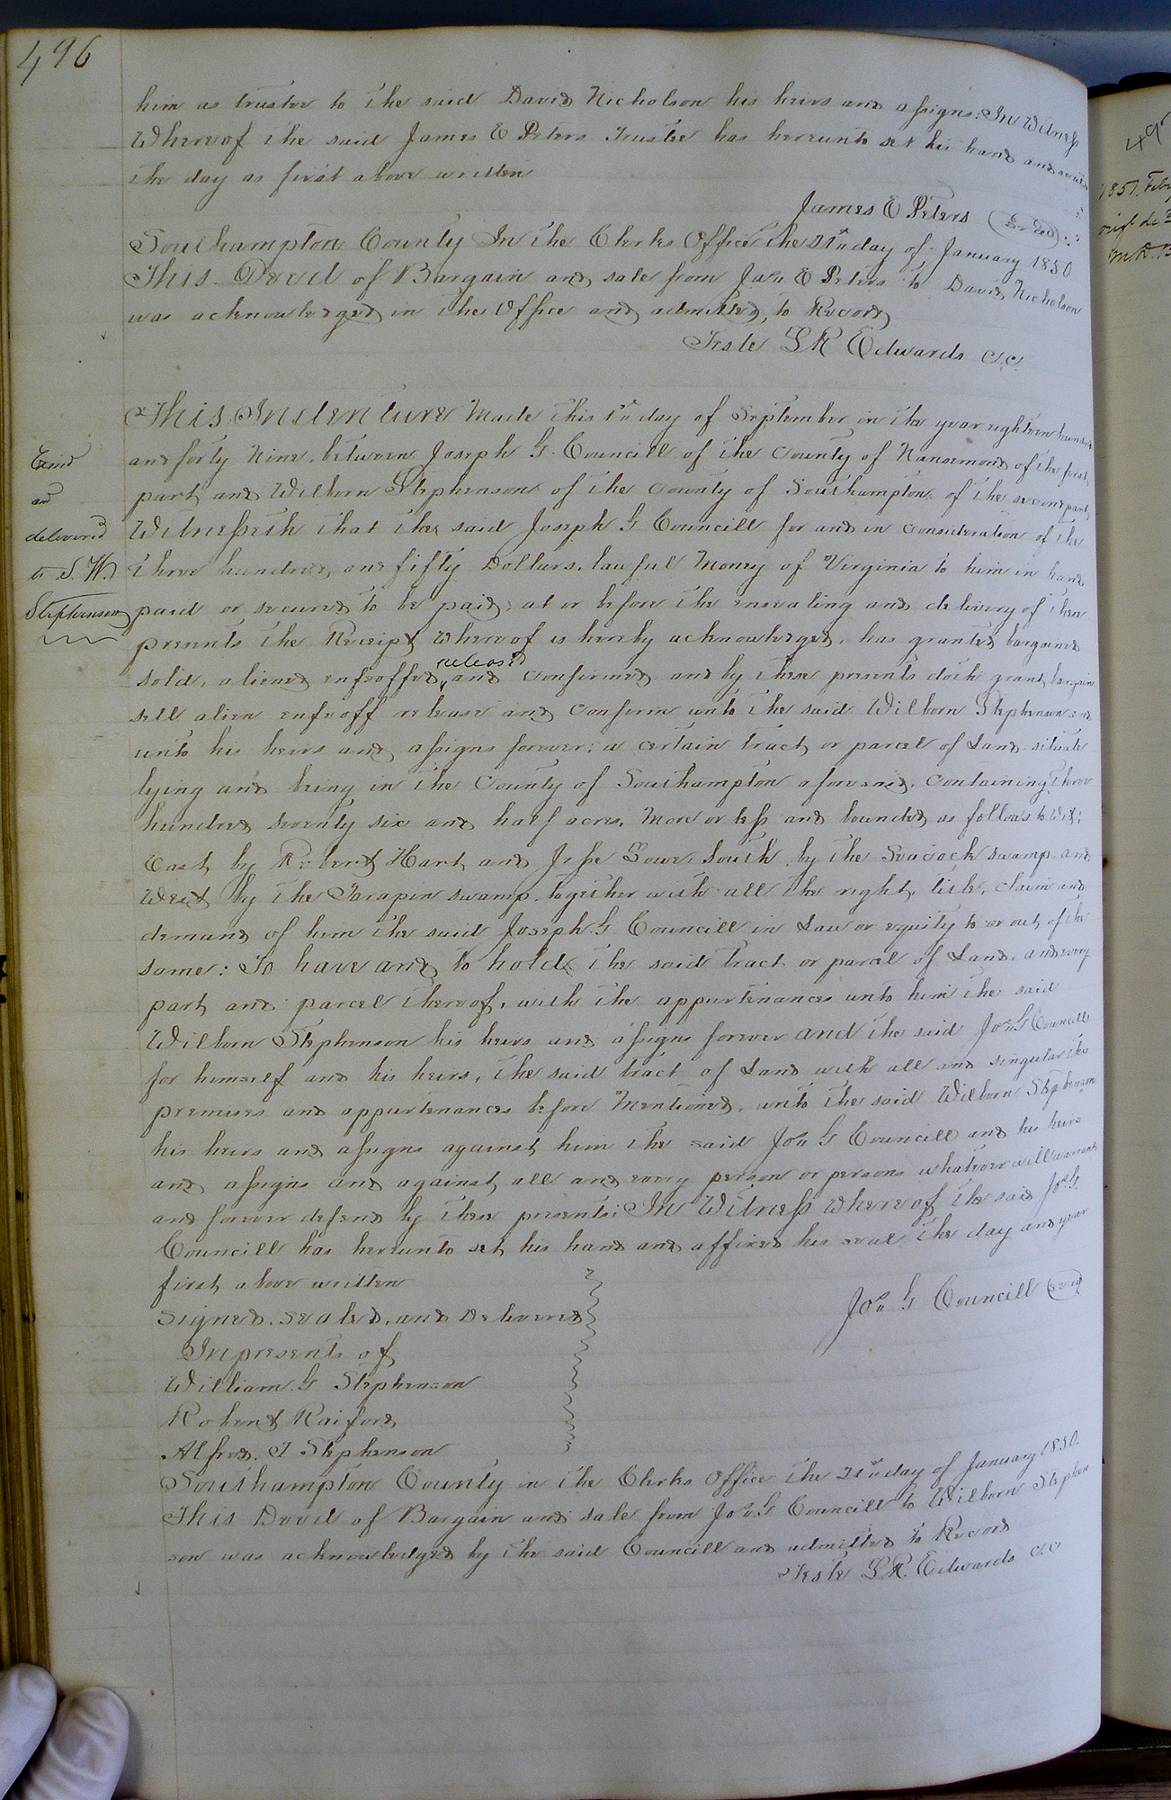 496
him as trustee to the said David Nicholson his heirs and assigns: In Witness
Whereof the said James E Peters Trustee has hereunto set his hand and seal
the day as first above written
James E Peters (Seal)
Southampton County In the Clerks Office the 21st day of January 1850
This Deed of Bargain and sale from Jas E Peters to David Nicholson
was acknowledged in the Office and admitted, to Record
Teste L R Edwards c.c.
This Indenture Made this 1st day of September in the year eighteen hundred
and forty Nine. between Joseph G. Councill of the County of Nansemond of the first
part, and Wilborn Stephenson of the County of Southampton of the second part,
Witnesseth that the said Joseph G Councill for and in consideration of the
three hundred, and fifty Dollars. lawful Money of Virginia to him in hand
paid or secured to be paid; at or before the ensealing and delivery of these
presents the Receipt Whereof is hereby acknowledged, has granted bargained
sold, aliened enfeoffed, released and confirmed and by these presents doth grant, bargain
sell alien enfeoff release and Confirm unto the said Wilborn Stephenson and
unto his heirs and assigns forever: a certain tract, or parcel of Land situate
lying and being in the County of Southampton aforesaid, Containing, three
hundred seventy six and half acres, More or less and bounded as follows to Wit:
East by Robert Hart and Jesse Gowr South by the Seacock swamp and
West by the Tarapin swamp. together with all the right, title, claim and
demand of him the said Joseph G. Councill in Law or equity to or out of the
same: To have and to hold the said tract or parcel of Land and every
part and parcel thereof, with the appurtenances unto him the said
Wilborn Stephenson his heirs and assigns forever and the said Jos G Councill
for himself and his heirs, the said tract of Land with all and singular the
premises and appurtenances before Mentioned, unto the said Wilborn Stephenson
his heirs and assigns against him the said Jos G Councill and his heirs
and assigns and against, all and every person or persons whatever will warrant
and forever defend by these presents: In Witness Whereof the said Jos G.
Councill has hereunto set his hand and affixed his seal the day and year
first above written
Jos G Councill (seal)
Signed, sealed, and Delivered
In presents of
William G Stephenson
Robert Raiford
Alfred. J Stephenson
Southampton County in the Clerks Office the 21st day of January 1850.
This Deed of Bargain and sale from Jos G Councill to Wilborn Stephen
son was acknowledged by the said Councill and admitted to Record
Teste L R. Edwards c.c
Exmd
and
delivered
to S. W.
Stephenson
495
1851. Feby